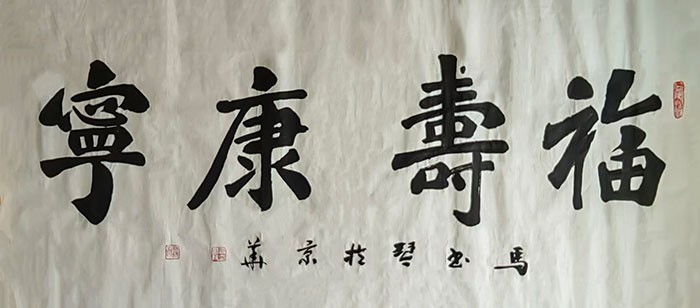 福壽康寧
馬琴於京華